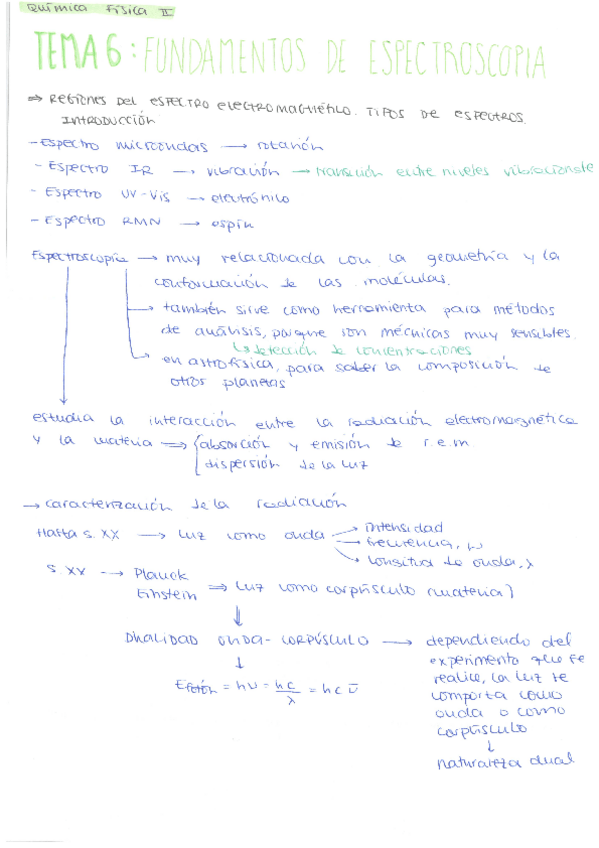 QUÍMICA FÍSICA II
TEMA 6: FUNDAMENTOS DE ESPECTROSCOPIA
⇒ REGIONES DEL ESPECTRO ELECTROMAGNÉTICO. TIPOS DE ESPECTROS.
INTRODUCCIÓN
- Espectro microondas → rotación
- Espectro IR → vibración → transición entre niveles vibracionales
- Espectro UV-Vis → electrónico
- Espectro RMN → espín
Espectroscopia → muy relacionada con la geometría y la
conformación de las moléculas.
→ también sirve como herramienta para métodos
de análisis, porque son mécnicas muy sensibles.
↳ detección de concentraciones
en astrofísica, para saber la composición de
otros planetas
estudia la interacción entre la radiación electromagnética
y la materia ⇒ { absorción y emisión de r.e.m
dispersión de la luz
→ caracterización de la radiación
Hasta s. XX → luz como onda → intensidad
→ frecuencia, ν
→ longitud de onda, λ
S. XX → Planck
Einstein ⇒ luz como corpúsculo (materia)
DUALIDAD ONDA-CORPÚSCULO → dependiendo del
experimento que se
realice, la luz se
comporta como
onda o como
corpúsculo
↓
naturaleza dual
E fotón = hν = hc/λ = hc ν̄